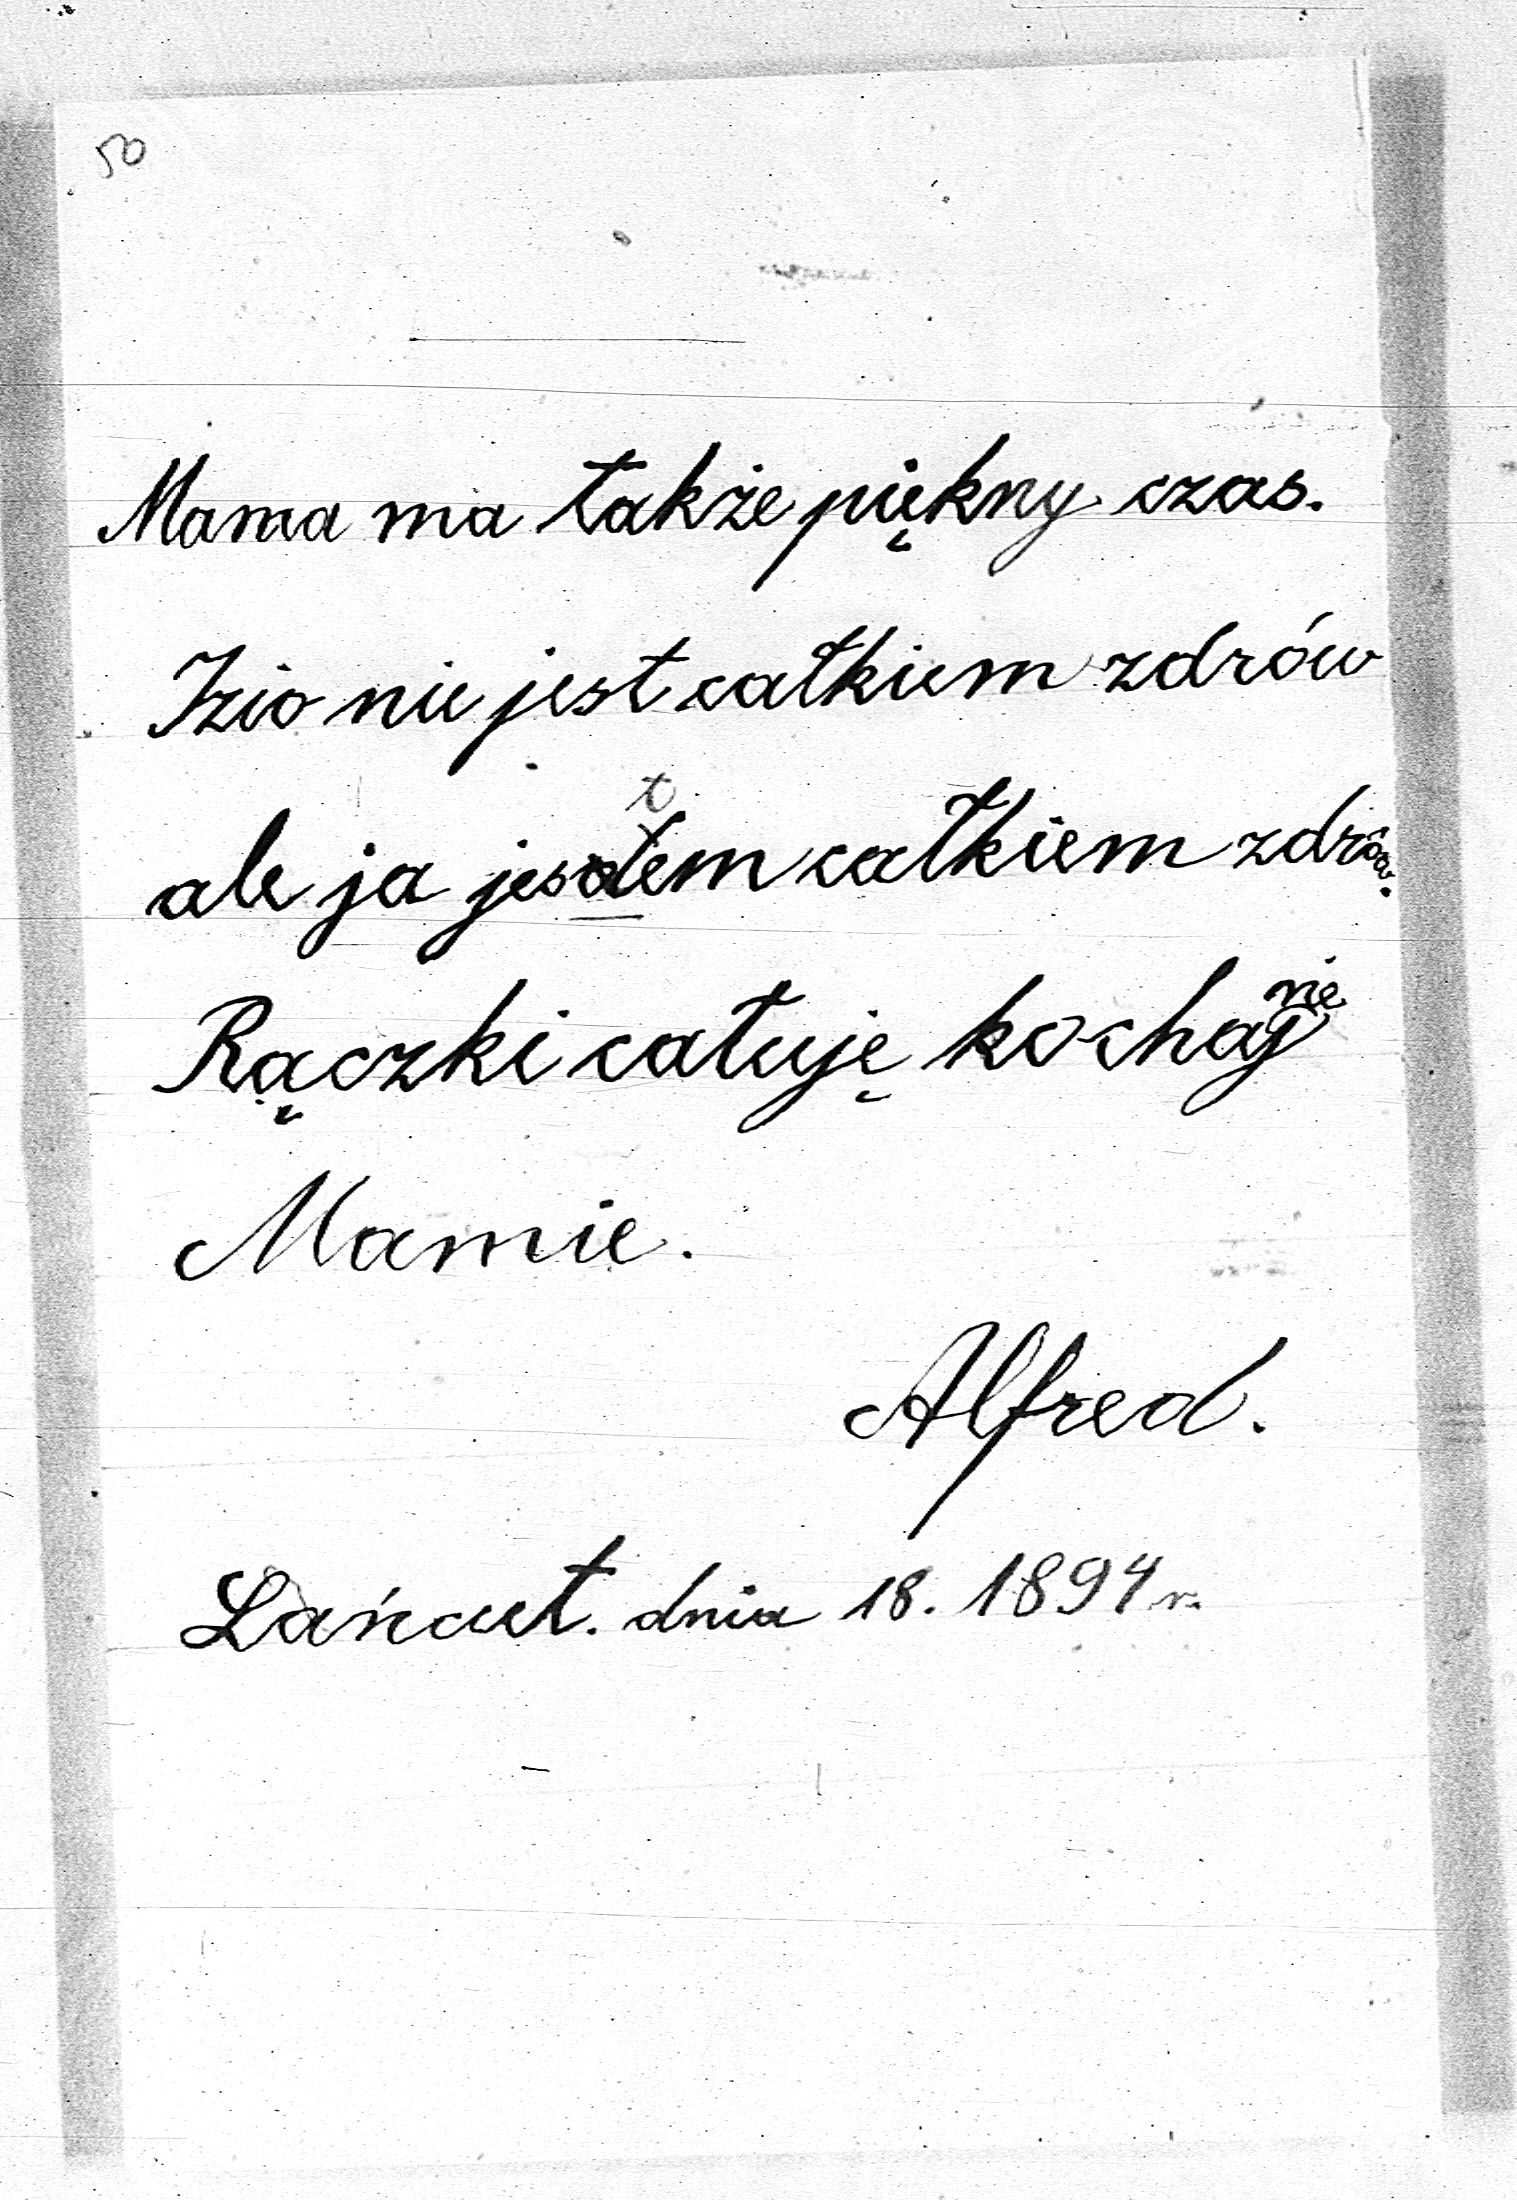 50
Mama ma także piękny czas.
Izio nie jest całkiem zdrów
ale ja jesdem całkiem zdrów.
Rączki całuję kochaj
nie
Mamie.
Alfred.
Łańcut. dnia 18. 1894 r.